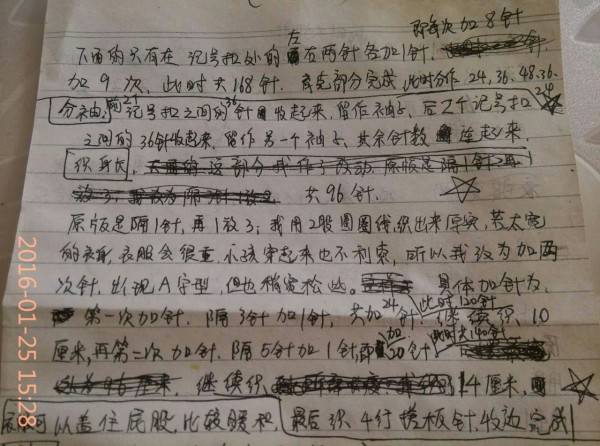 即每次加8针
下面的只有在记号扣处的左右两针各加1针,
加9次,此时共168针.育克部分完成.此时分作24.36.48.36.24
分袖:前2个记号扣之间的36针收起来,留作袖子,后2个记号扣
之间的36针收起来,留作另一个袖子,其余针数连起来,
织身长,
共96针.
原版是隔1针,再1放3;我用2股圈圈线,织出来厚实,若太宽
的衣身,衣服会很重,小孩穿起来也不利索,所以我改为加两
次针,出现A字型,但也稍宽松些。具体加针为,
第一次加针,隔3针加1针,共加24针,此时120针 继续织10
厘米,再第二次加针,隔5针加1针,即加20针 此时共140针
继续织14厘米,
可以盖住屁股,比较暖和,最后织4行搓板针,收边,完成
2016-01-25 15:28